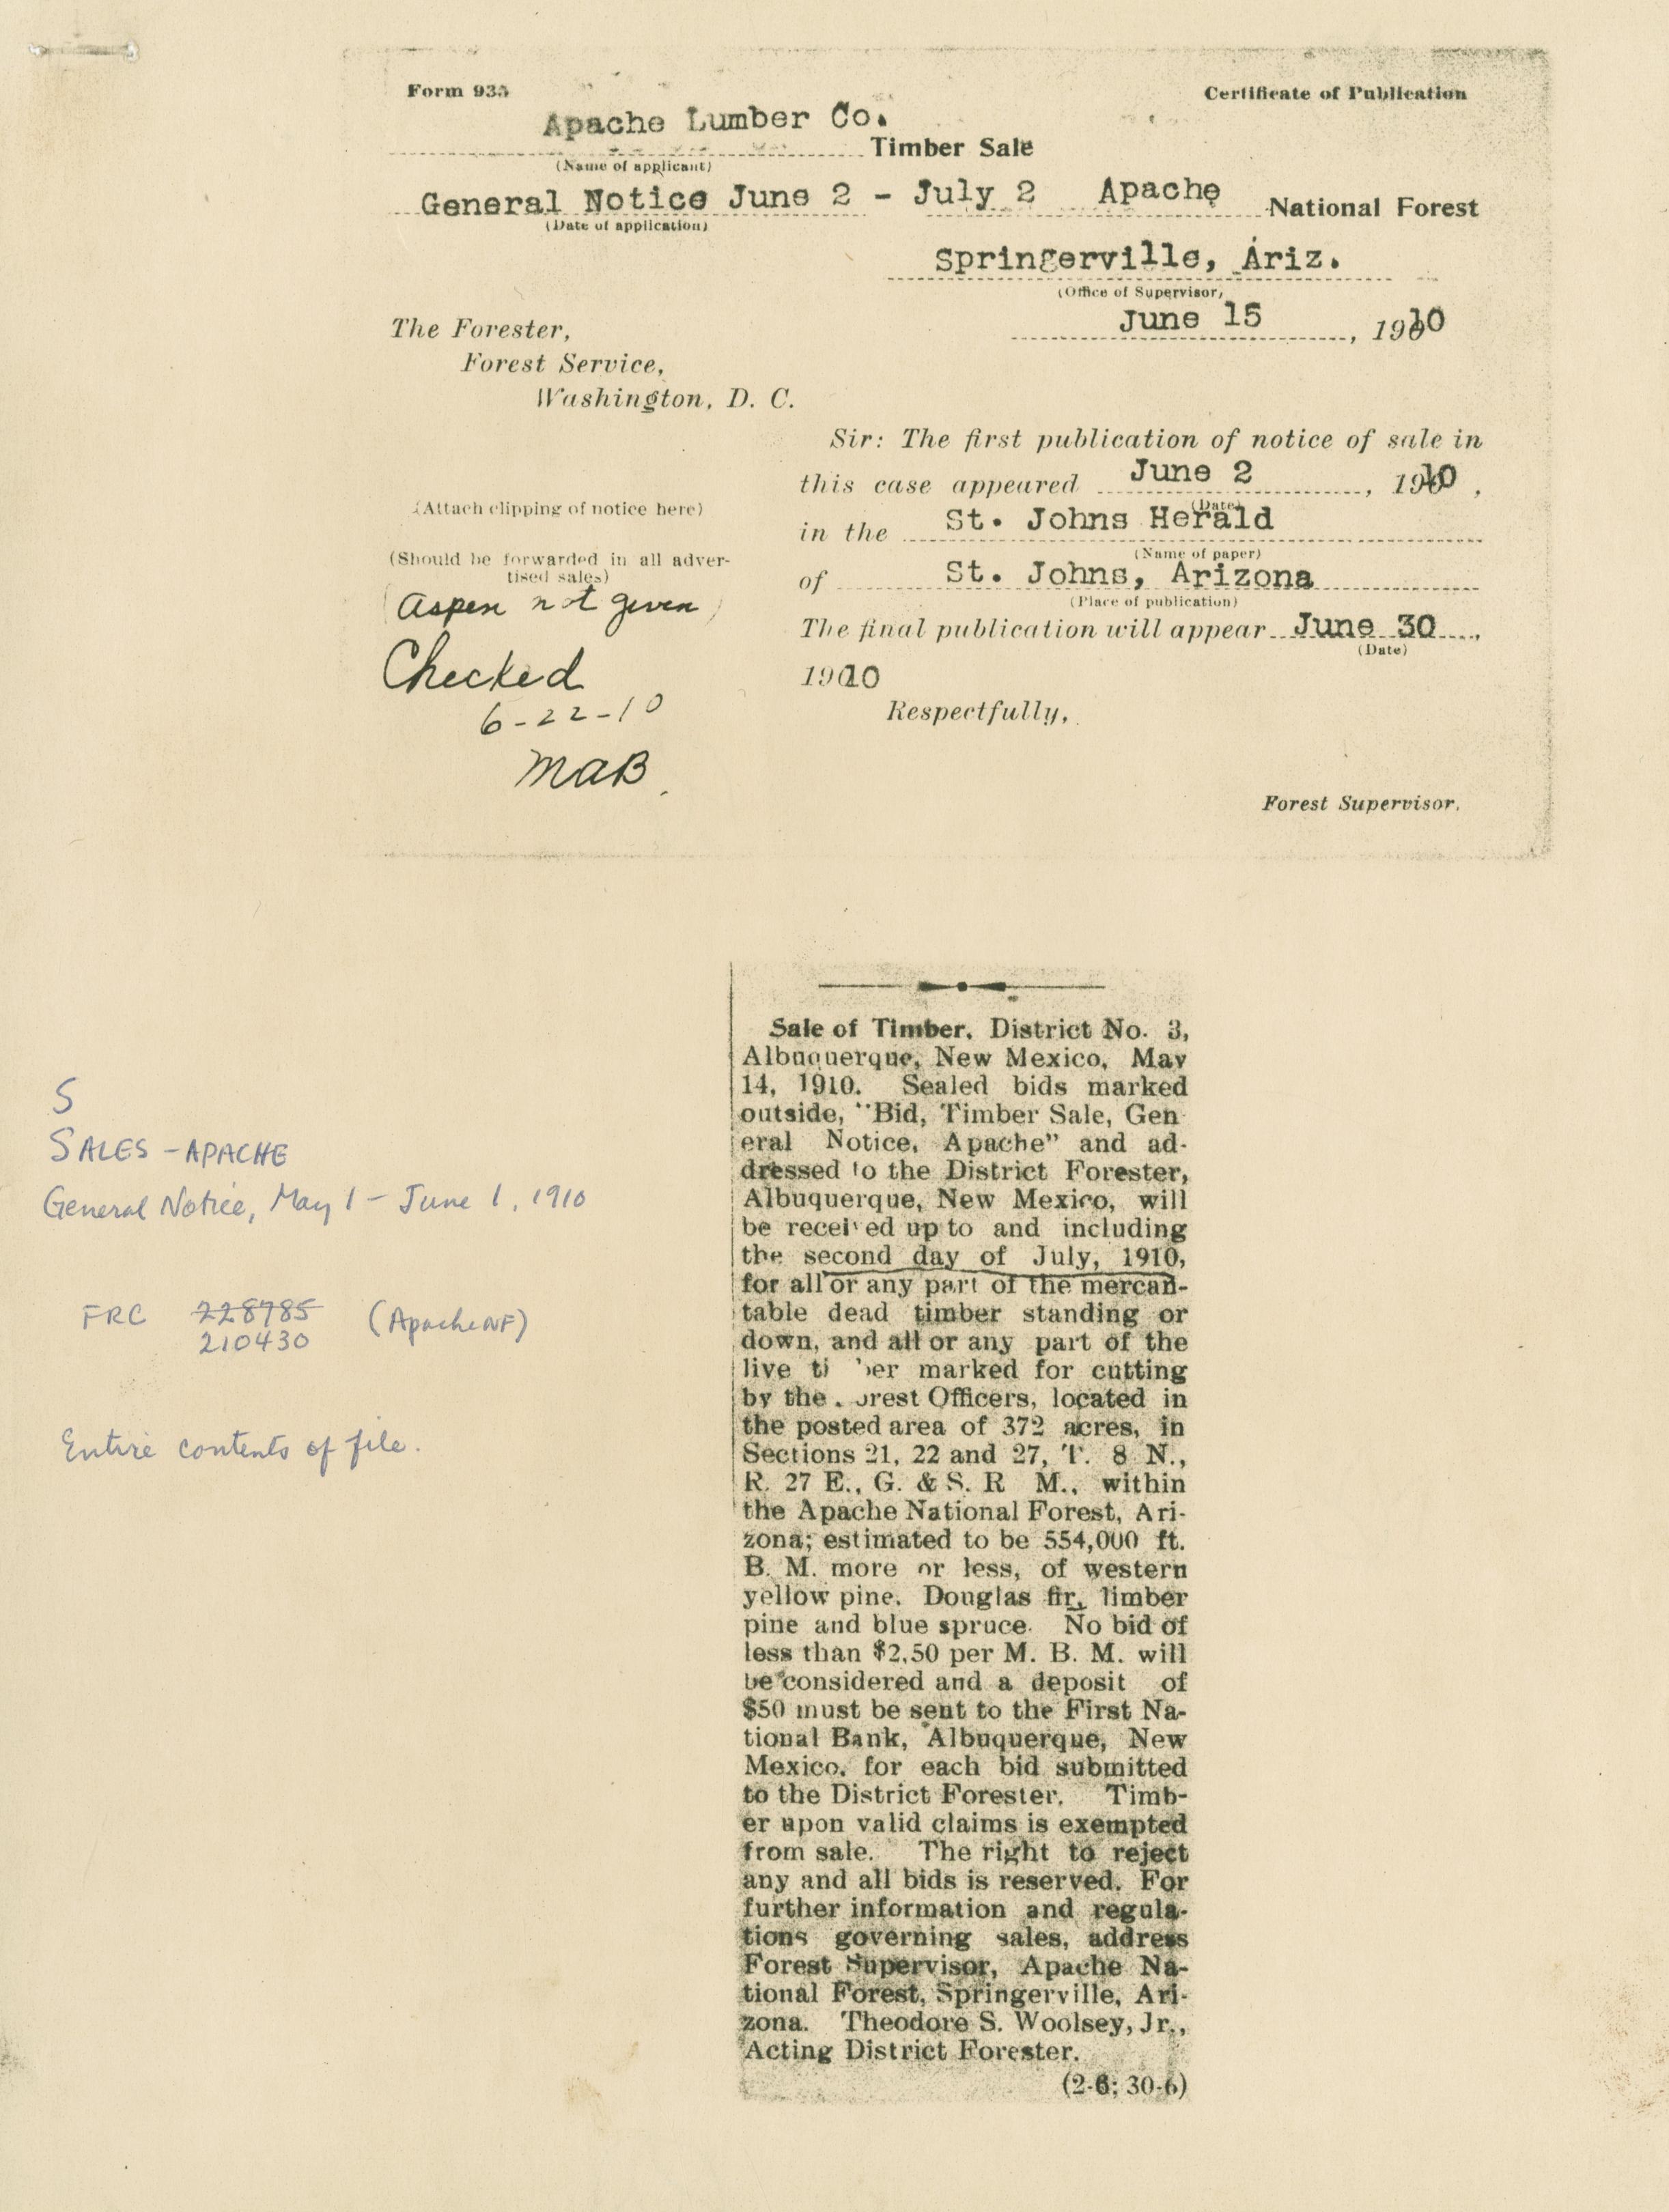 Form 935
Certificate of Publication
Apache Lumber Co.
Timber Sale
(Name of applicant)
General Notice June 2 - July 2 Apache National Forest
(Date of application)
Springerville, Ariz.
(Office of Supervisor)
June 15, 1910
The Forester,
Forest Service,
Washington, D. C.
Sir: The first publication of notice of sale in
this case appeared June 2, 1910,
(Date)
in the St. Johns Herald
(Name of paper)
of St. Johns, Arizona
(Place of publication)
The final publication will appear June 30,
(Date)
1910
Respectfully,
Forest Supervisor.
(Attach clipping of notice here)
(Should be forwarded in all adver-
tised sales)
(Aspen not given)
Checked
6-22-10
MAB
S
SALES - APACHE
General Notice, May 1 - June 1, 1910
FRC 228785 (Apache NF)
210430
Entire contents of file.
Sale of Timber, District No. 3,
Albuquerque, New Mexico, May
14, 1910. Sealed bids marked
outside, "Bid, Timber Sale, Gen
eral Notice, Apache" and ad-
dressed to the District Forester,
Albuquerque, New Mexico, will
be received up to and including
the second day of July, 1910,
for all or any part of the mercan-
table dead timber standing or
down, and all or any part of the
live ti ber marked for cutting
by the orest Officers, located in
the posted area of 372 acres, in
Sections 21, 22 and 27, T. 8 N.,
R. 27 E., G. & S. R M., within
the Apache National Forest, Ari-
zona; estimated to be 554,000 ft.
B. M. more or less, of western
yellow pine, Douglas fir, limber
pine and blue spruce. No bid of
less than $2.50 per M. B. M. will
be considered and a deposit of
$50 must be sent to the First Na-
tional Bank, Albuquerque, New
Mexico, for each bid submitted
to the District Forester. Timb-
er upon valid claims is exempted
from sale. The right to reject
any and all bids is reserved. For
further information and regula-
tions governing sales, address
Forest Supervisor, Apache Na-
tional Forest, Springerville, Ari-
zona. Theodore S. Woolsey, Jr.,
Acting District Forester.
(2-6; 30-6)